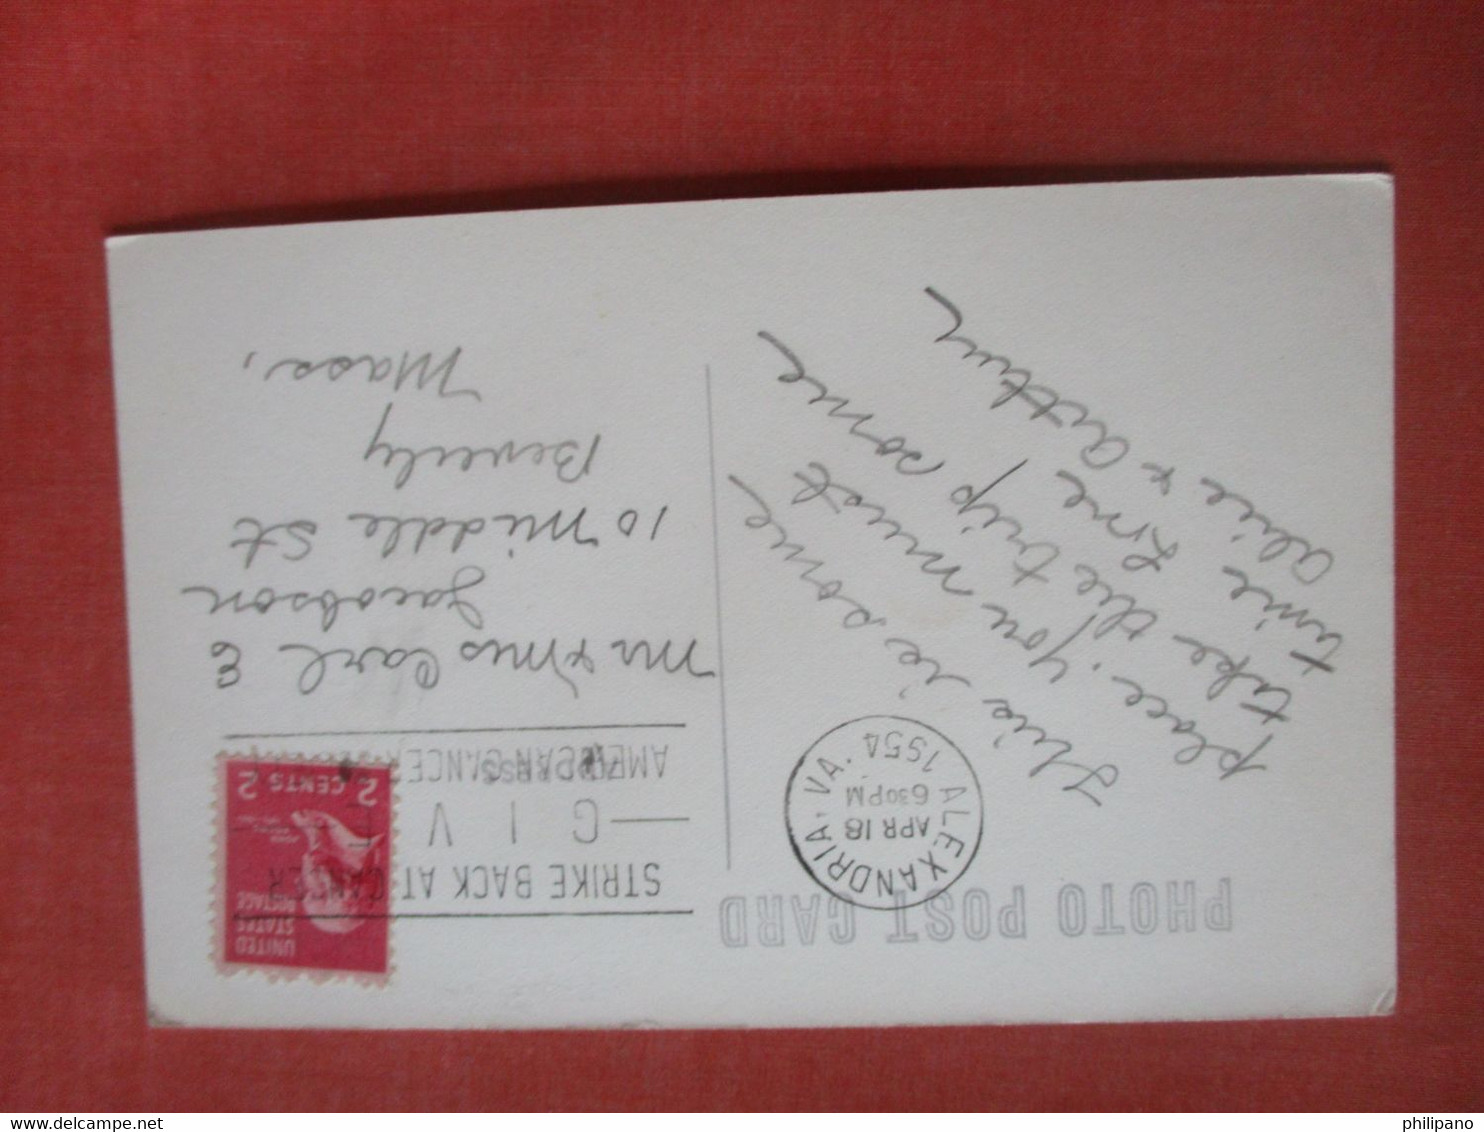 PHOTO POST CARD
ALEXANDRIA, VA.
APR 18
6 30PM
1954
STRIKE BACK AT CANCER
— GIVE —
AMERICAN CANCER
UNITED
STATES
POSTAGE
2 CENTS 2
This is some
place. you must
take the trip some
time. Lme
Alice & Arthur
Mr & Mrs Carl E
Jacobson
10 Middle St
Beverly
Mass,
www.delcampe.net
philipano